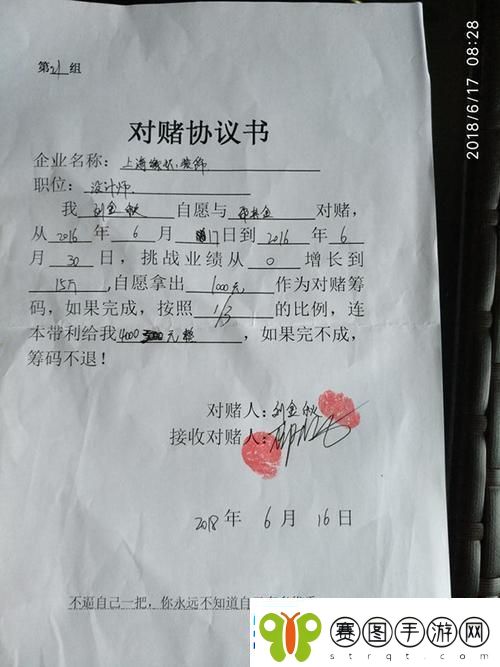 2018/6/17 08:28
第21组
对赌协议书
企业名称：上海 装饰
职位：设计师
我 刘金秋 自愿与 对赌，
从2016年6月17日到2016年6
月30日，挑战业绩从0增长到
15万，自愿拿出1000元作为对赌筹
码，如果完成，按照1/3的比例，连
本带利给我4000 元整，如果完不成，
筹码不退！
对赌人：刘金秋
接收对赌人：
2018年6月16日
不逼自己一把，你永远不知道自己
赛图手游网
strqt.com